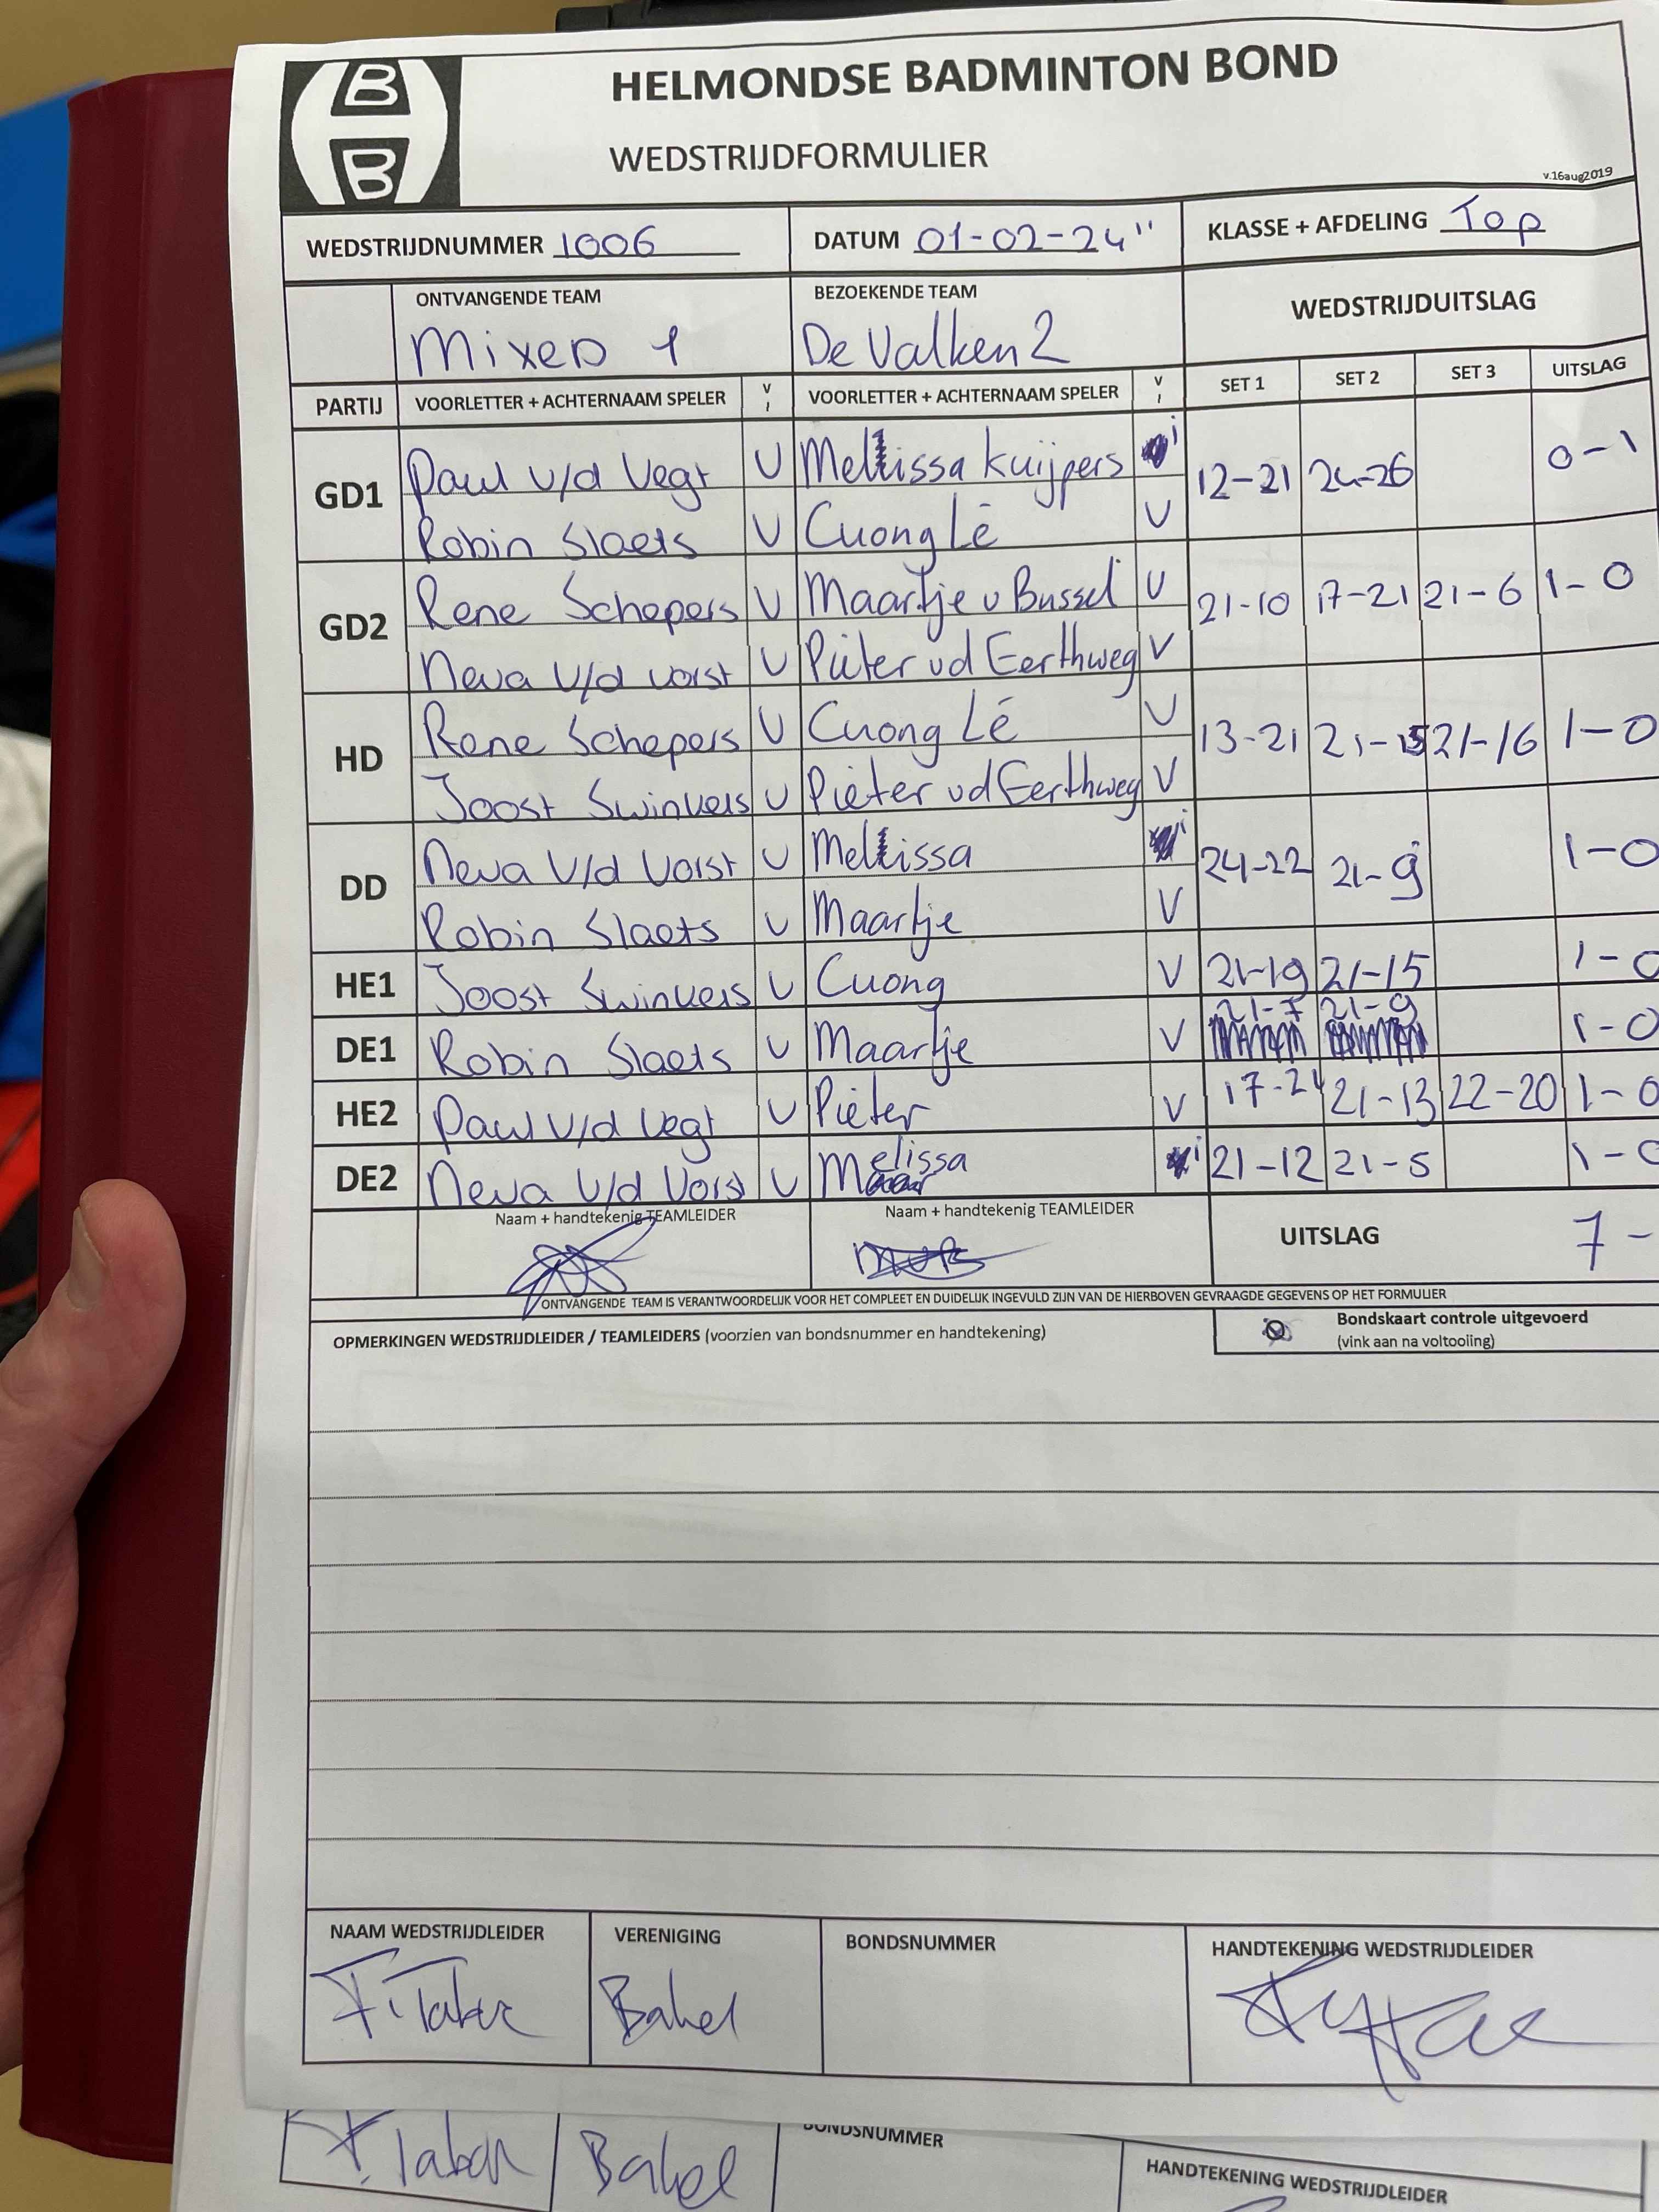 B
B
HELMONDSE BADMINTON BOND
WEDSTRIJDFORMULIER
v.16aug2019
WEDSTRIJDNUMMER 1006 DATUM 01-02-24" KLASSE + AFDELING Top
ONTVANGENDE TEAM BEZOEKENDE TEAM WEDSTRIJDUITSLAG
Mixed 1 De Valken 2
PARTIJ VOORLETTER + ACHTERNAAM SPELER V I VOORLETTER + ACHTERNAAM SPELER V I SET 1 SET 2 SET 3 UITSLAG
GD1 Paul v/d Vegt V Mellissa Kuijpers i 12-21 24-26 0-1
Robin Slaets V Cuong Lê V
GD2 Rene Schepers V Maartje v Bussel V 21-10 17-21 21-6 1-0
Neva v/d Vorst V Pieter vd Eerthweg V
HD Rene Schepers V Cuong Lé V 13-21 21-15 21-16 1-0
Joost Swinkels V Pieter vd Eerthweg V
DD Neva v/d Vorst V Mellissa i 24-22 21-9 1-0
Robin Slaets V Maartje V
HE1 Joost Swinkels V Cuong V 21-19 21-15 1-0
DE1 Robin Slaets V Maartje V 21-7 21-9 1-0
HE2 Paul v/d Vegt V Pieter V 17-21 21-13 22-20 1-0
DE2 Neva v/d Vorst V Melissa i 21-12 21-5 1-0
Naam + handtekenig TEAMLEIDER Naam + handtekenig TEAMLEIDER UITSLAG 7-
ONTVANGENDE TEAM IS VERANTWOORDELIJK VOOR HET COMPLEET EN DUIDELIJK INGEVULD ZIJN VAN DE HIERBOVEN GEVRAAGDE GEGEVENS OP HET FORMULIER
OPMERKINGEN WEDSTRIJDLEIDER / TEAMLEIDERS (voorzien van bondsnummer en handtekening) Bondskaart controle uitgevoerd
(vink aan na voltooiing)
NAAM WEDSTRIJDLEIDER VERENIGING BONDSNUMMER HANDTEKENING WEDSTRIJDLEIDER
Bakel
BONDSNUMMER
Bakel
HANDTEKENING WEDSTRIJDLEIDER